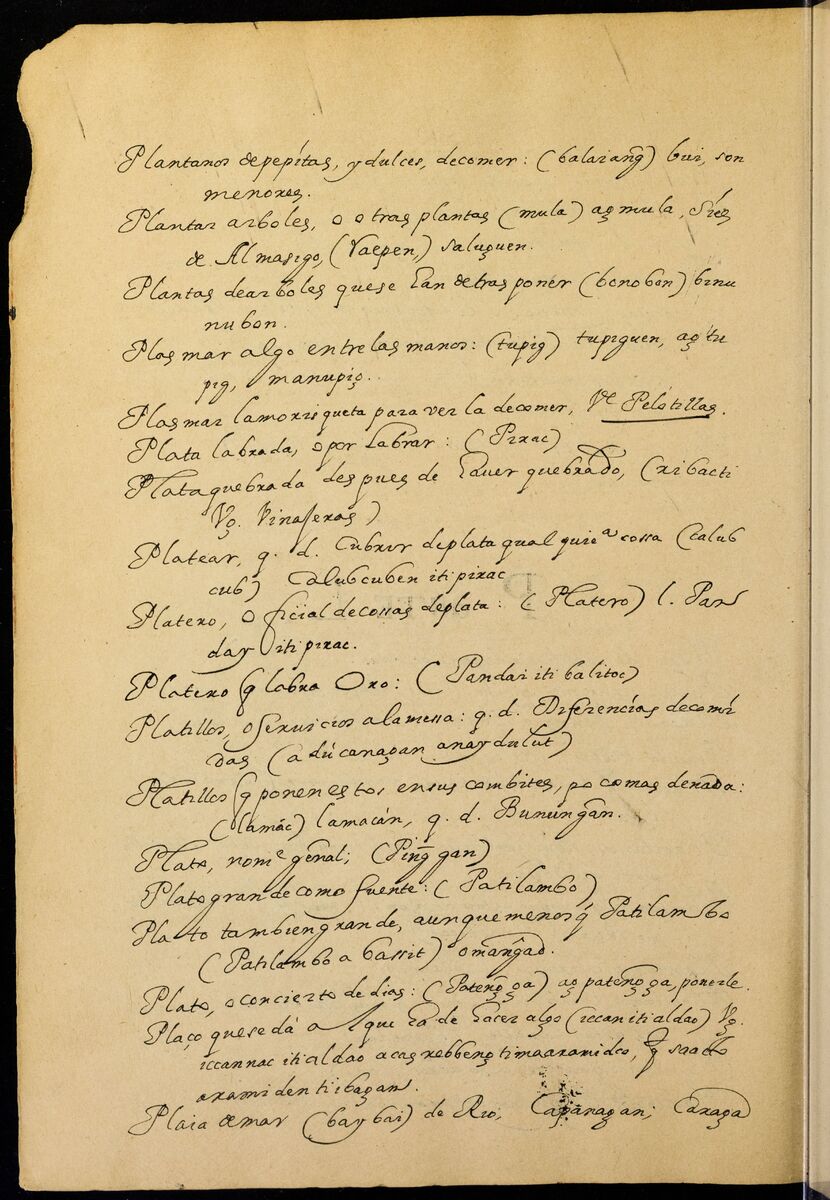 Plantanos de pepitas, y dulces, de comer: (balaiang̃) bui, son
menores.
Plantar arboles, o otras plantas (mula) ag mula,
de Almasigo, (Vaepen,) saluguen.
Plantas de arboles que se han de trasponer (bonobon) binu
nubon.
Plasmar algo entre las manos: (tupig) tupiguen, ag tu
pig, manupig.
Plasmar la morisqueta para verla de comer, Vᵉ Pelotillas.
Plata labrada, o por labrar: (Pirac)
Plata quebrada despues de haver quebrado, (ribacti
Vg. Vinaseras)
Platear, q. d. Cubrir de plata qual quieᵃ cossa (Calub
cub) Calubcuben iti pirac
Platero, oficial de cossas de plata: (Platero) l. Pan
day iti pirac.
Platero q̃ labra Oro: (Pandai iti balitoc)
Platillos, o servicios a la messa: q. d. Diferencias de comi
das (adú canagan anaydulut)
Platillos q̃ ponen estos en sus combites, po comas de nada:
(lamác) lamacán, q. d. Bunúngan.
Plato, nomᵉ gẽnal; (Ping̃gan)
Plato grande como fuente: (Patilambo)
Plato tambien grande, aunque menos q̃ Patilambo
(Patilambo a bassit) o mang̃ad.
Plato, o concierto de dias: (Pateng̃ga) ag pateng̃ga, ponerle.
Plaço que se dá al que ha de hacer algo (iccan iti aldao) Vg.
iccannac iti aldao acas rebbeng ti maaramidco, q̃ saad
aramiden ti ibagan.
Plaia de mar (baybai) de Rio, Capanagan; Caraga